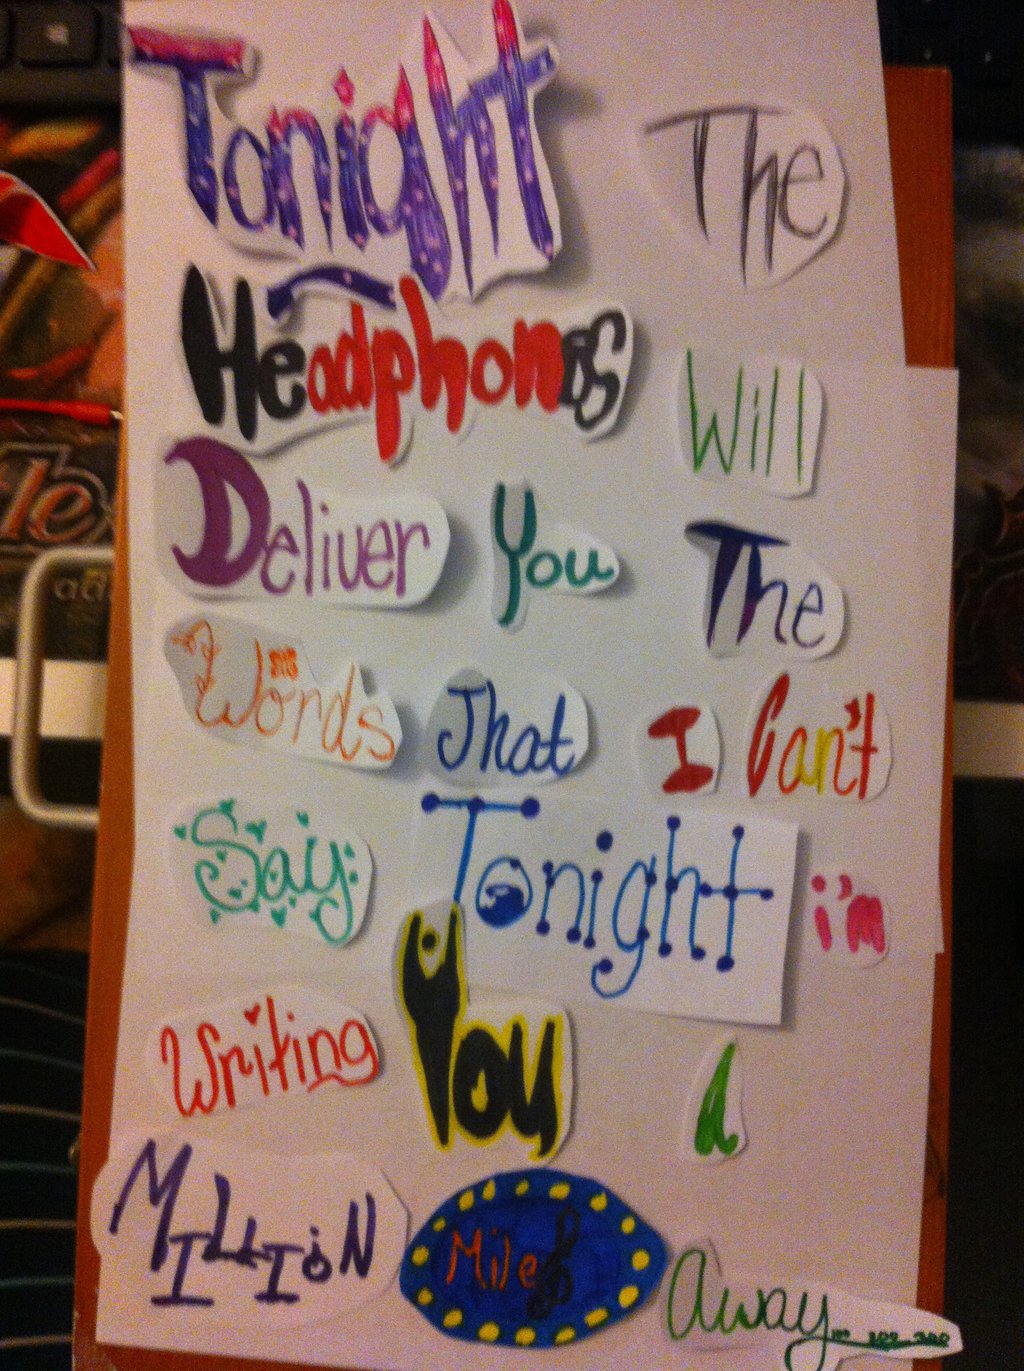 Tonight The
Headphones Will
Deliver You The
Words That I Can't
Say Tonight i'm
Writing You A
MILLION Miles Away